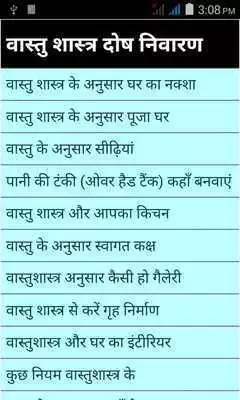 3:08 PM
वास्तु शास्त्र दोष निवारण
वास्तु शास्त्र के अनुसार घर का नक्शा
वास्तु शास्त्र के अनुसार पूजा घर
वास्तु के अनुसार सीढ़ियां
पानी की टंकी (ओवर हैड टैंक) कहाँ बनवाएं
वास्तु शास्त्र और आपका किचन
वास्तु के अनुसार स्वागत कक्ष
वास्तुशास्त्र अनुसार कैसी हो गैलेरी
वास्तु शास्त्र से करें गृह निर्माण
वास्तुशास्त्र और घर का इंटीरियर
कुछ नियम वास्तुशास्त्र के